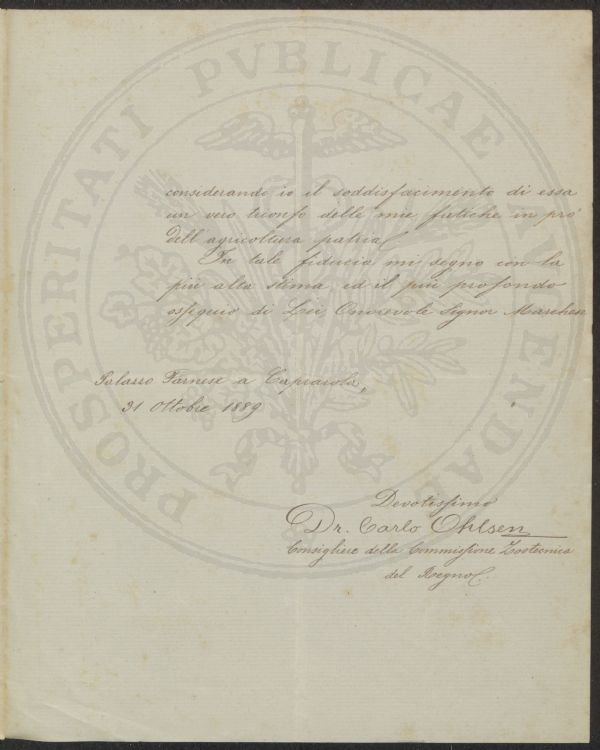 PROSPERITATI PVBLICAE AVGENDAE
considerando io il soddisfacimento di essa
un vero trionfo delle mie fatiche in pro'
dell'agricoltura patria.
In tale fiducia mi segno con la
più alta stima ed il più profondo
ossequio di Lei Onorevole Signor
Palazzo Farnese a Caprarola,
31 Ottobre 1889
Devotissimo
Dr. Carlo Ohlsen
Consigliere della Commissione Zootecnica
del Regno.